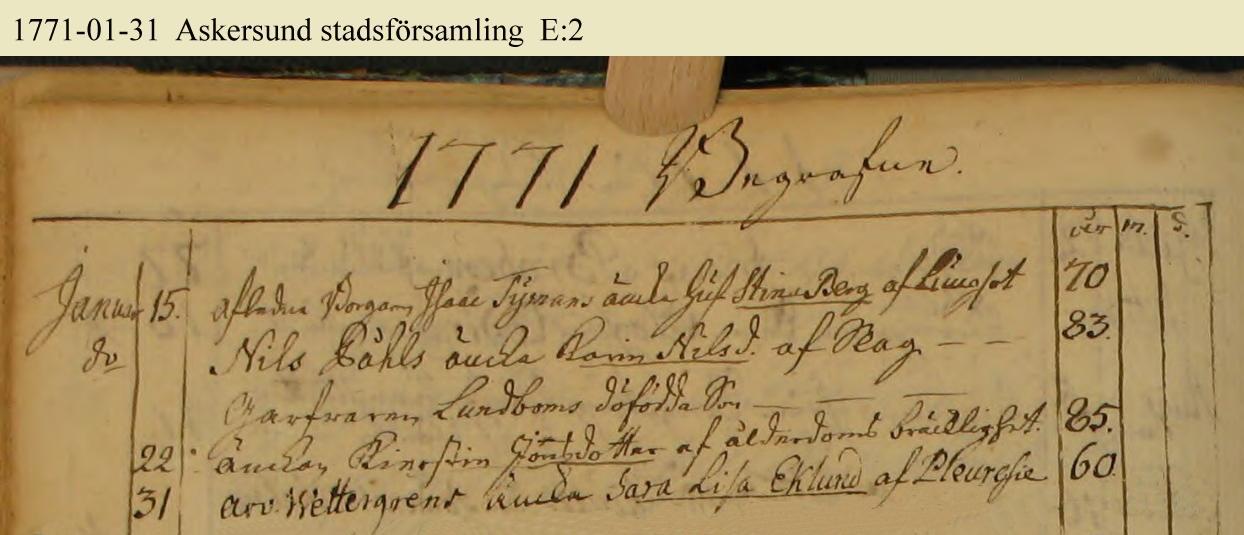 1771-01-31 Askersund stadsförsamling E:2
1771 Begrafne.
år m. d.
Januar 15. afledne Borgarn Isaac änka Hust Stina Berg af Lungsot 70
do Nils Påhls äncka Karin Nilsd. af Slag - - 83.
Garfvaren Lundboms dödfödda Son — — —
22 änckan Kierstin Jönsdotter af ålderdoms bräcklighet. 85.
31 Arv. Wettergrens äncka Sara Lisa Eklund af Pleuresie 60